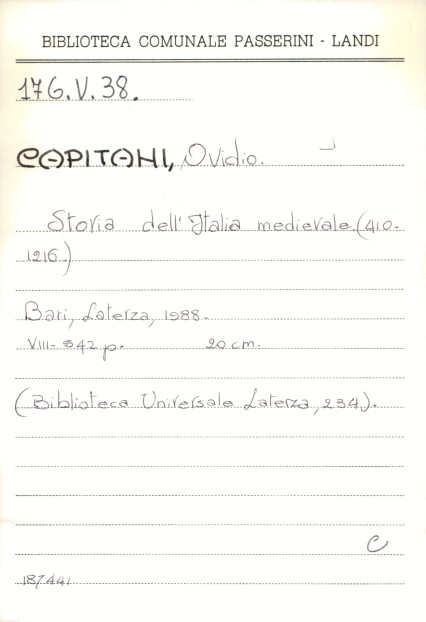 BIBLIOTECA COMUNALE PASSERINI - LANDI
176.V.38.
CAPITANI, Ovidio.
Storia dell'Italia medievale.(410-
1216.)
Bari, Laterza, 1988.
VIII-542 p. 20 cm.
(Biblioteca Universale Laterza, 234).
C
187441